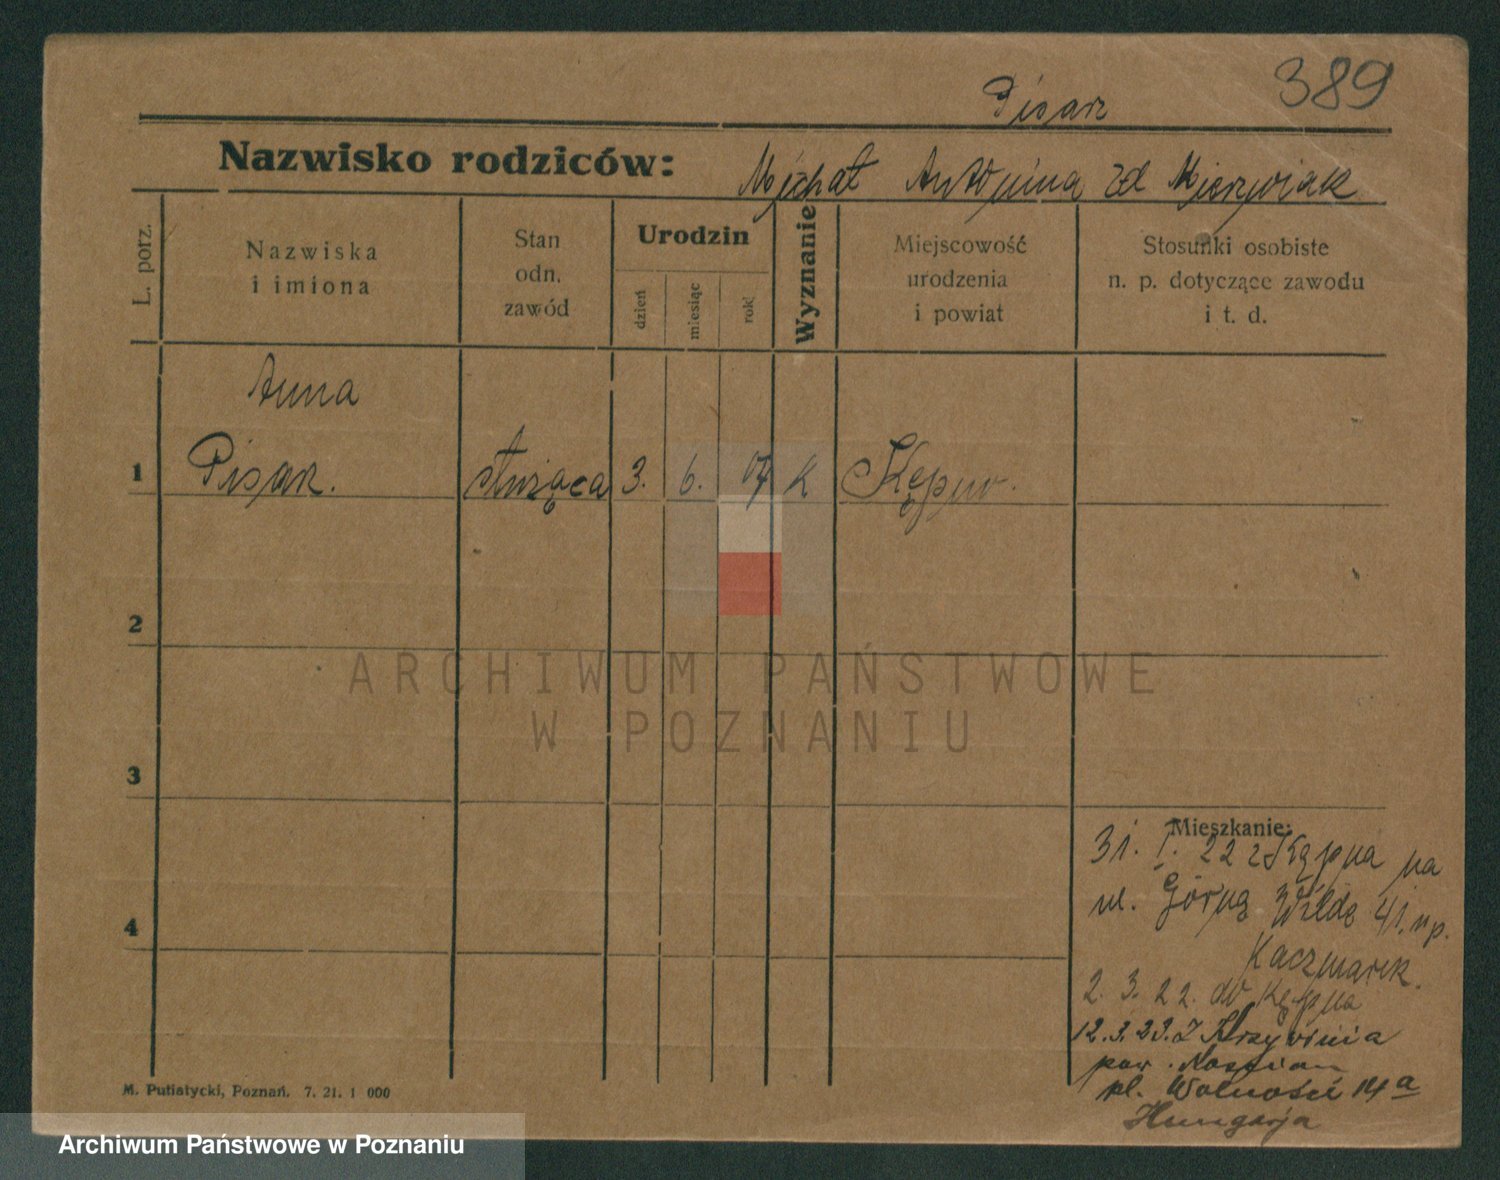 389
Pisarz
Nazwisko rodziców: Michał Antonina zd
L. porz.
Nazwiska
i imiona
Stan
odn.
zawód
Urodzin
dzień
miesiąc
rok
Wyznanie
Miejscowość
urodzenia
i powiat
Stosunki osobiste
n. p. dotyczące zawodu
i t. d.
Anna
1 Pisarz. służąca 3. 6. 07 K Kępno.
2
3
4
Mieszkanie:
31. I. 22 z Kępna na
ul. Górną Wildę 41. u p.
Kaczmarek.
2. 3. 22. do Kępna
12.3.23. z Krzywinia
pow. Kościan
pl. Wolności 14a
Hungarja
M. Putiatycki, Poznań. 7. 21. 1 000
ARCHIWUM PAŃSTWOWE
W POZNANIU
Archiwum Państwowe w Poznaniu